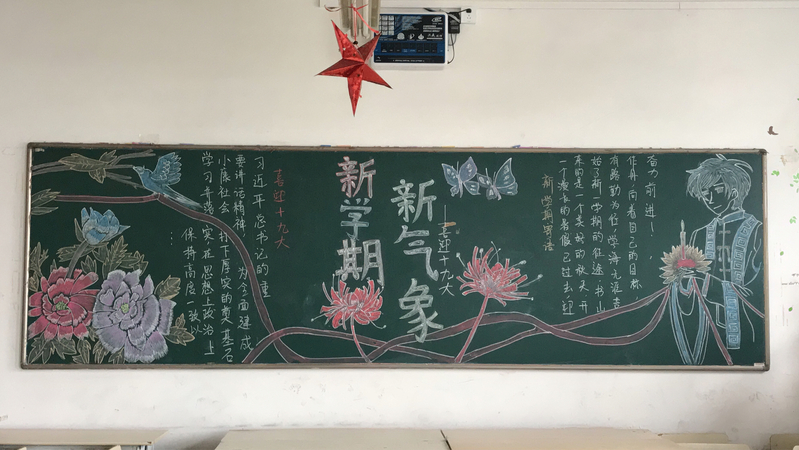 新学期
新气象
—喜迎十九大
喜迎十九大
习近平总书记的重
要讲话精神,为全面建成
小康社会,打下厚实的奠基石
学习 落实在思想上政治上
保持高度一致以
新学期寄语
一个漫长的暑假已过去 迎
来的是一个美好的秋天 开
始了新一学期的征途 书山
有路勤为径 学海无涯苦
作舟,向着自己的目标,
奋力前进!